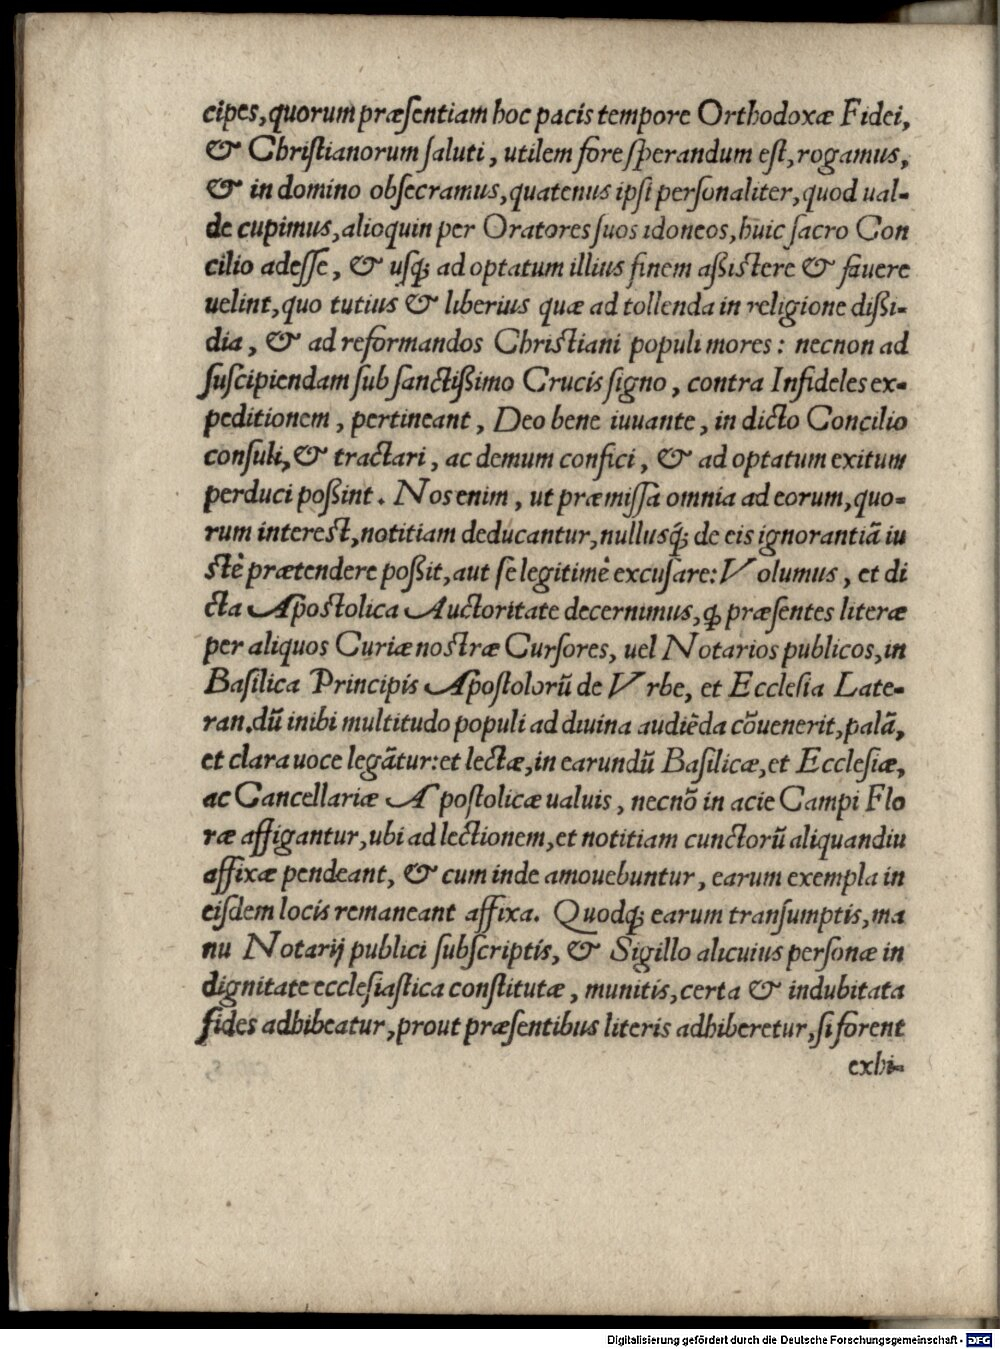 cipes, quorum præſentiam hoc pacis tempore Orthodoxæ Fidei,
& Chriſtianorum ſaluti, utilem fore ſperandum eſt, rogamus,
& in domino obſecramus, quatenus ipſi perſonaliter, quod ual-
de cupimus, alioquin per Oratores ſuos idoneos, huic ſacro Con
cilio adeſſe, & uſq; ad optatum illius finem aßiſtere & fauere
uelint, quo tutius & liberius quæ ad tollenda in religione dißi-
dia, & ad reformandos Chriſtiani populi mores: necnon ad
ſuſcipiendam ſub ſanctißimo Crucis ſigno, contra Infideles ex-
peditionem, pertineant, Deo bene iuuante, in dicto Concilio
conſuli, & tractari, ac demum confici, & ad optatum exitum
perduci poßint. Nos enim, ut præmiſſa omnia ad eorum, quo-
rum intereſt, notitiam deducantur, nullusq́; de eis ignorantiã iu
ſtè prætendere poßit, aut ſe legitimè excuſare: Volumus, et di
cta Apoſtolica Auctoritate decernimus, ꝙ præſentes literæ
per aliquos Curiæ noſtræ Curſores, uel Notarios publicos, in
Baſilica Principis Apoſtolorũ de Vrbe, et Eccleſia Late-
ran. dũ inibi multitudo populi ad diuina audiẽda cõuenerit, palã,
et clara uoce legãtur: et lectæ, in earundũ Baſilicæ, et Eccleſiæ,
ac Cancellariæ Apoſtolicæ ualuis, necnõ in acie Campi Flo
ræ affigantur, ubi ad lectionem, et notitiam cunctorũ aliquandiu
affixæ pendeant, & cum inde amouebuntur, earum exempla in
eiſdem locis remaneant affixa. Quodq; earum tranſumptis, ma
nu Notarij publici ſubſcriptis, & Sigillo alicuius perſonæ in
dignitate eccleſiaſtica conſtitutæ, munitis, certa & indubitata
fides adhibeatur, prout præſentibus literis adhiberetur, ſi forent
exhi-
Digitalisierung gefördert durch die Deutsche Forschungsgemeinschaft - DFG